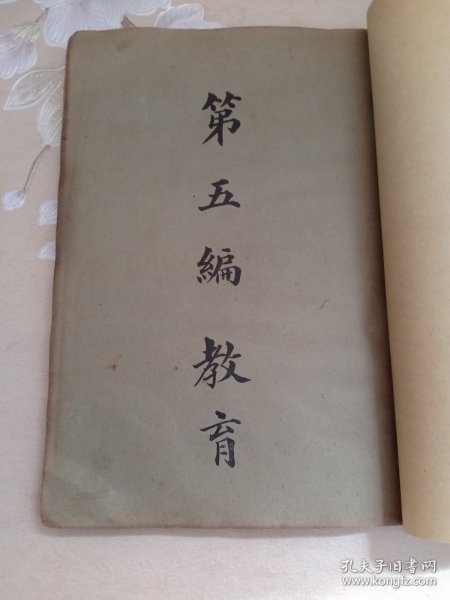 第五編 教育
孔夫子旧书网
www.kongfz.com